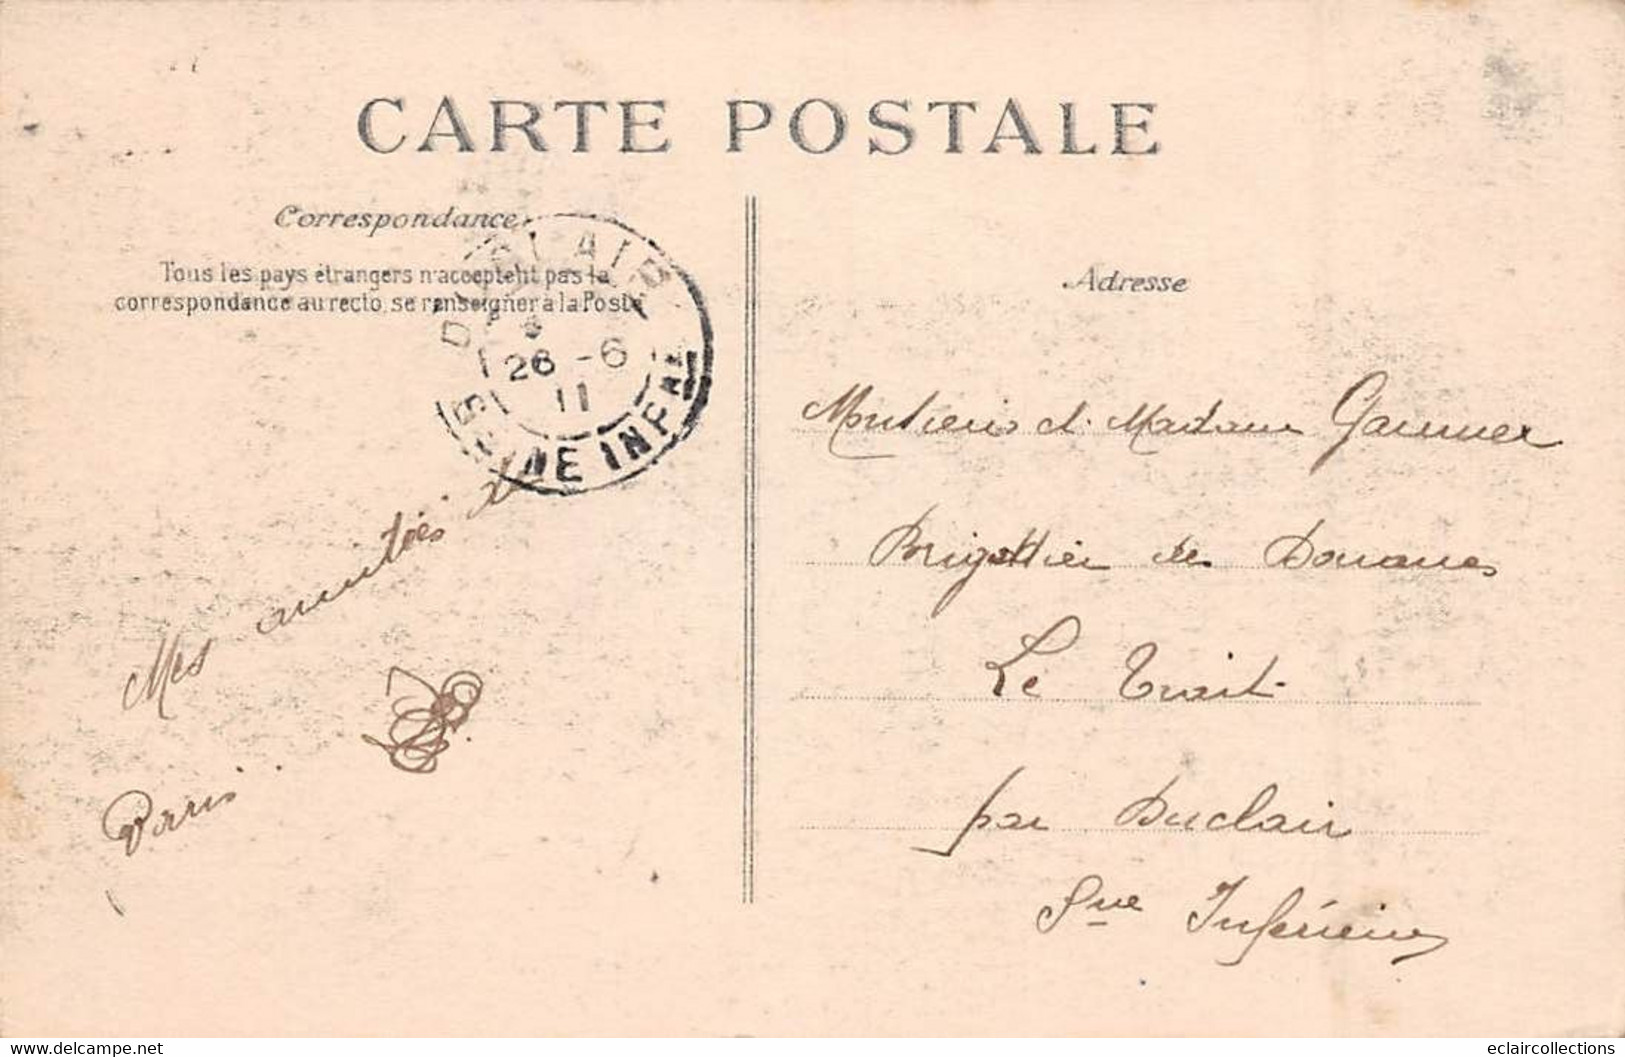 CARTE POSTALE
Correspondance
Tous les pays étrangers n'acceptent pas la
correspondance au recto, se renseigner à la Poste
DUCLAIR
26 -6
11
SEINE INFRE
Mes amitiés
Paris
Adresse
Monsieur et Madame Garnier
Brigadier des Douanes
Le Trait
par Duclair
Sne Inférieure
www.delcampe.net
eclaircollections